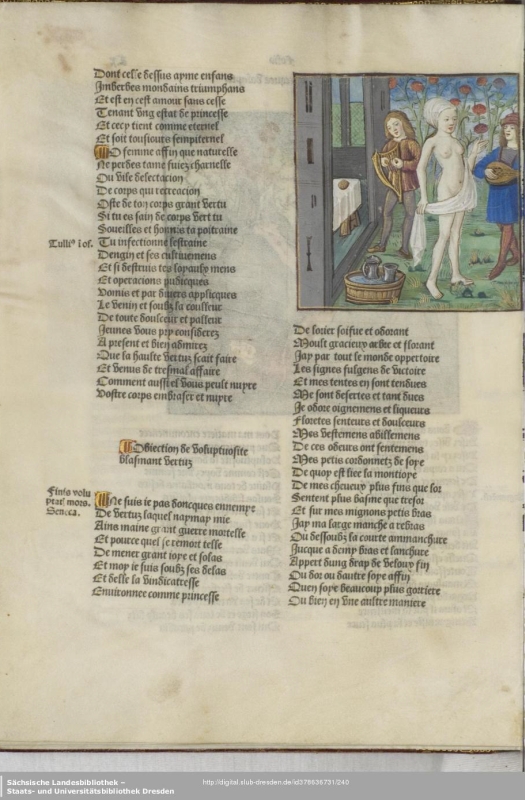 Dont celle dessus ayme enfans
Imberbes mondains triumphans
Et est en cest amour sans cesse
Tenant vng estat de princesse
Et cecy tient comme eternel
Et soit tousiours sempiternel
O femme affin que naturelle
Ne perdes tame fuiez charnelle
Ou vile delectacion
De corps qui recreacion
Oste de ton corps grant vertu
Si tu es sain de corps vert tu
Soueilles et honnis ta poitraine
Tullius i of.
Tu infectionne lestraine
Dengin et ses enstruemens
Et si destruis tes loyaulx mens
Et operacions pudicques
Vomis et par divers applicques
Le venin et soubz la couleur
De toute doulceur et palleur
Jeunes vous pry considerez
A present et bien admirez
Que la haulte vertuz scait faire
Et Venus de tresmal affaire
Comment aussi el vous peult nuyre
Vostre corps embraser et nuyre
Obiection de voluptuosite
blasmant vertuz
Finis volu
ptatis mors.
Seneca.
Ne suis ie pas doncques ennemye
De vertuz laquel naymay mie
Ains maine grant guerre mortelle
Et pource quel se remort telle
De mener grant ioye et solas
Et moy ie suis soubz ses delas
Et delle la vindicatresse
Environnee comme princesse
De losier soifue et odorant
Moult gracieux arbre et florant
Jay par tout le monde oppertoire
Les signes fulgens de victoire
Et mes tentes en sont tendues
Me sont desertes et tant dues
Je odore oignemens et liqueurs
Floretes senteurs et doulceurs
Mes vestemens abillemens
De ces odeurs ont sentemens
Mes petis cordonnetz de soye
De quoy est liee la montioye
De mes cheueux plus fins que lor
Sentent plus basme que tresor
Et sur mes mignons petis bras
Jay ma large manche a rebras
Ou dessoubz la courte ammanchure
Jucque a demy bras et lanchure
Appert dung drap de veloux fin
Ou dor ou dautre soye affin
Quen soye beaucoup plus gorriere
Ou bien en vne aultre maniere
Sächsische Landesbibliothek –
Staats- und Universitätsbibliothek Dresden
http://digital.slub-dresden.de/id378636731/240